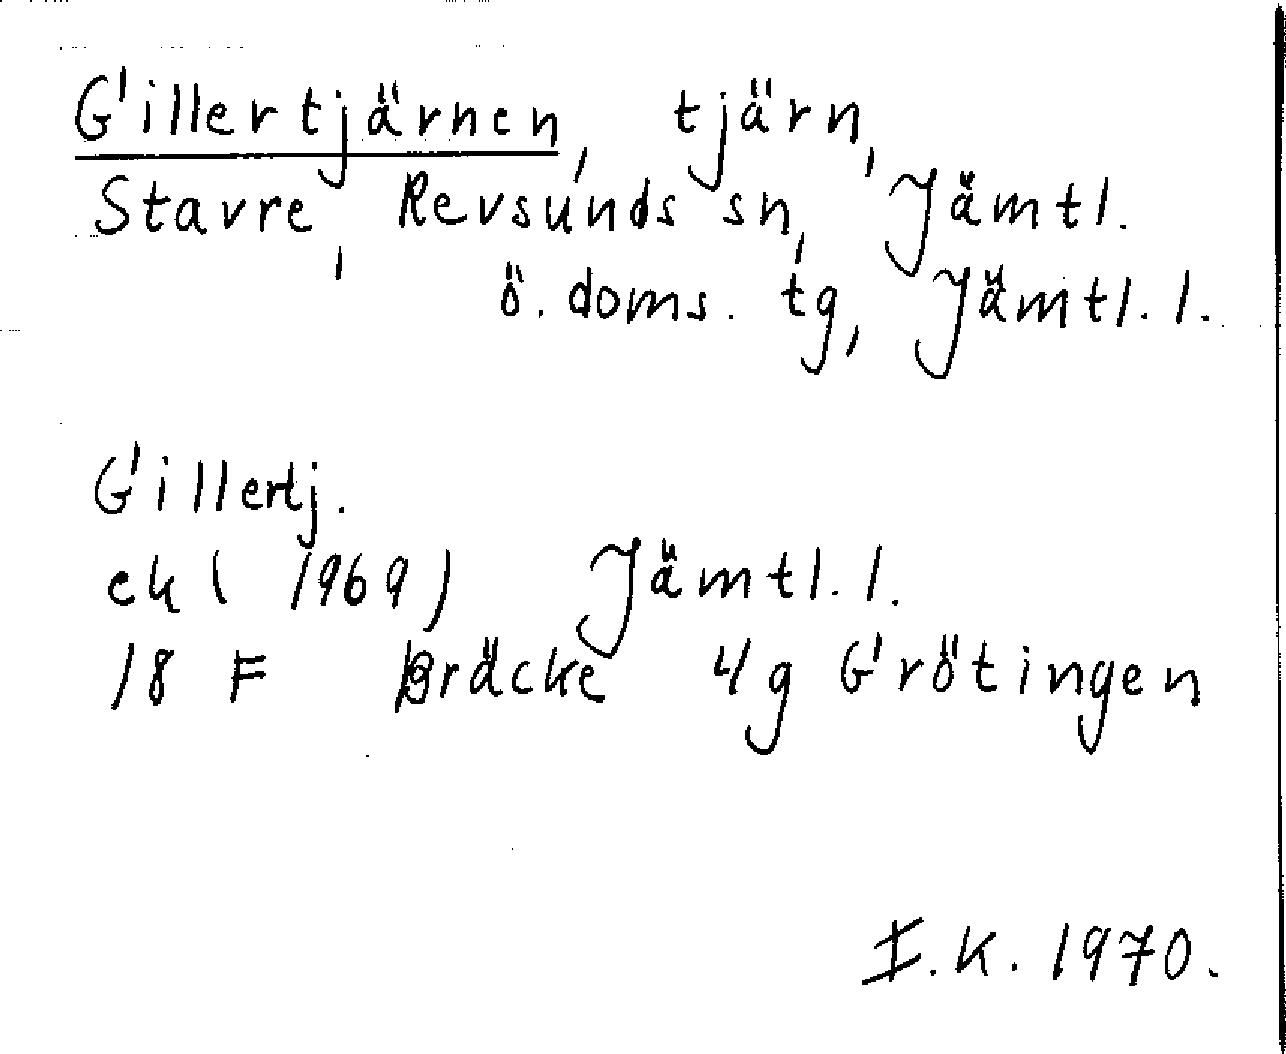 Gillertjärnen, tjärn,
Stavre, Revsunds sn, Jämtl.
ö. doms. tg, Jämtl. l.
Gillertj.
ek (1969) Jämtl. l.
18 F Bräcke 4g Grötingen
I.K. 1970.